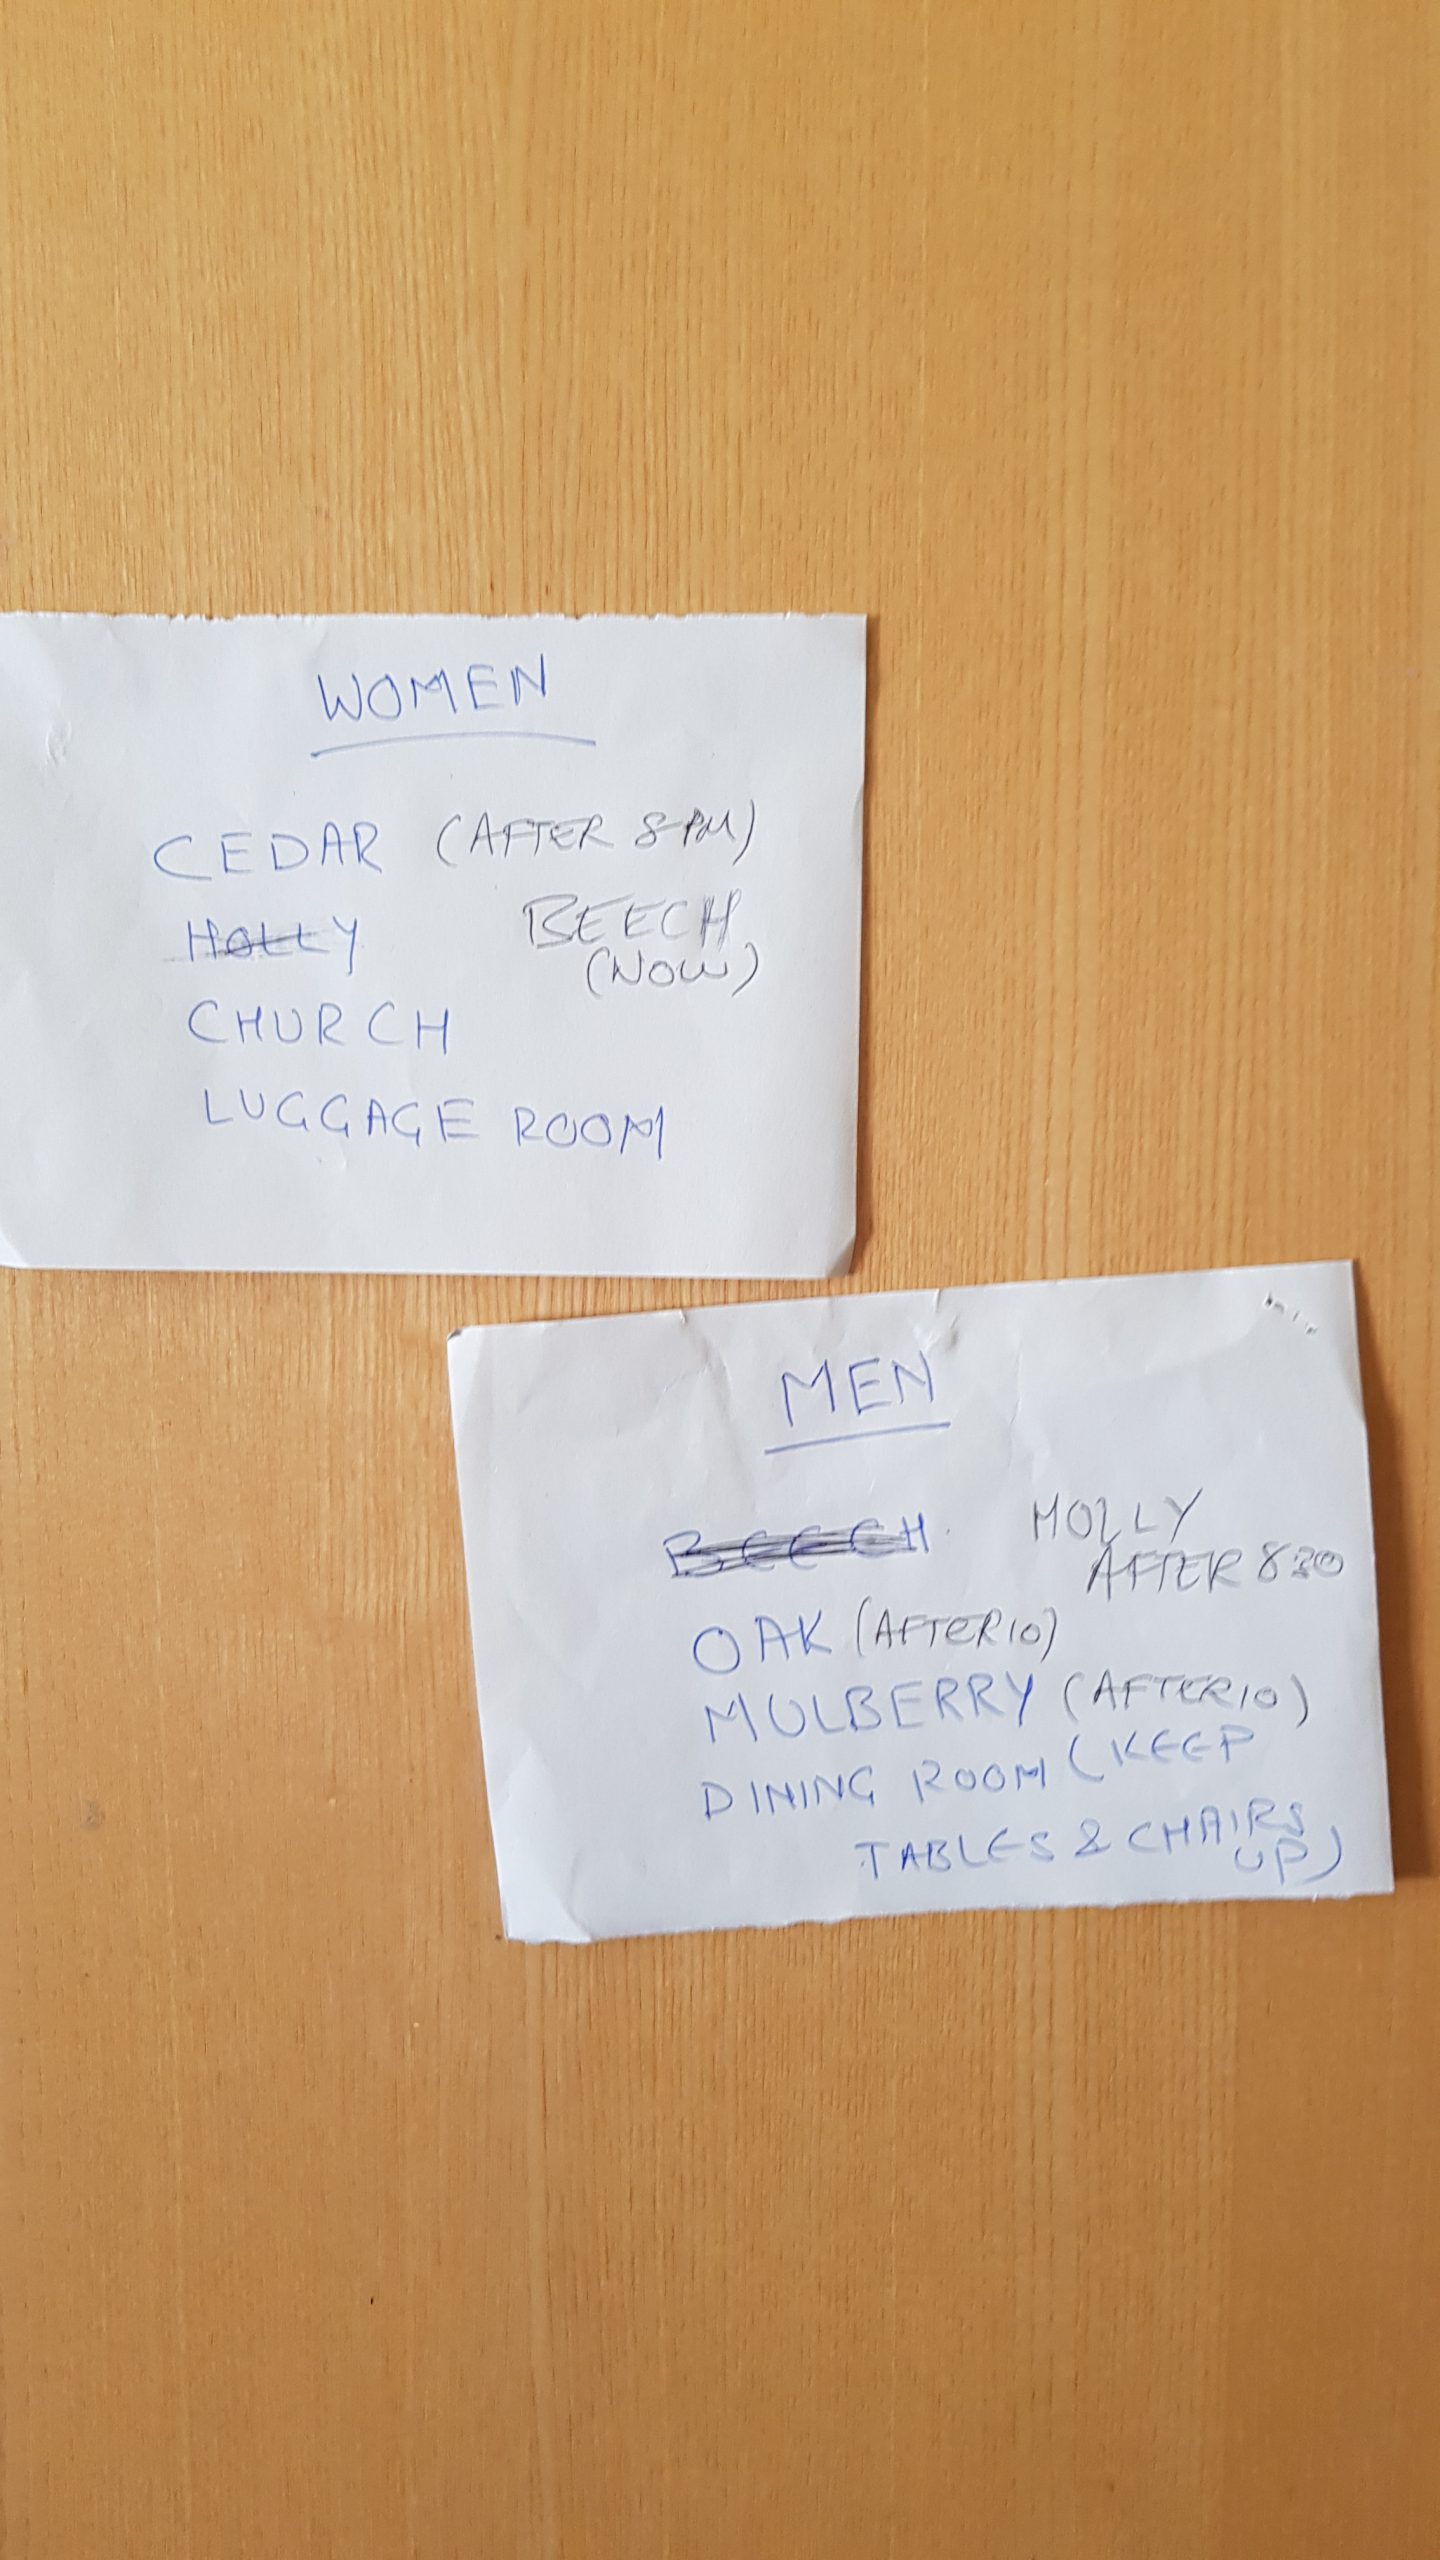 WOMEN
CEDAR (AFTER 8PM)
HOLLY BEECH
(NOW)
CHURCH
LUGGAGE ROOM
MEN
BEECH HOLLY
AFTER 830
OAK (AFTER 10)
MULBERRY (AFTER 10)
DINING ROOM (KEEP
TABLES & CHAIRS
UP)